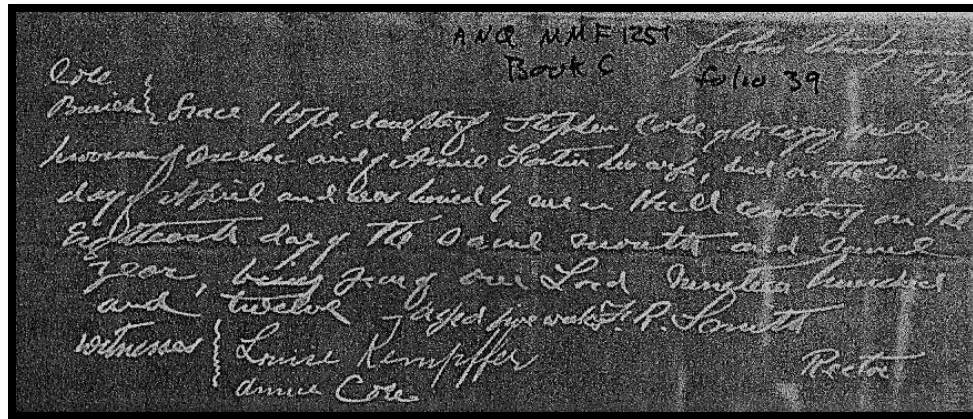 ANQ MMF 1251
Book C folio 39
John
Cole
Buried Grace Hope, daughter of Stephen Cole of the
province of Quebec and of Annie his wife, died on the
day of April and was buried by me in Hull cemetery on the
Eighteenth day of the same month and same
year, being year of our Lord Nineteen hundred
and twelve - Aged five weeks. F. R. Smith
witnesses Louise Kempffer
Annie Cole
Rector